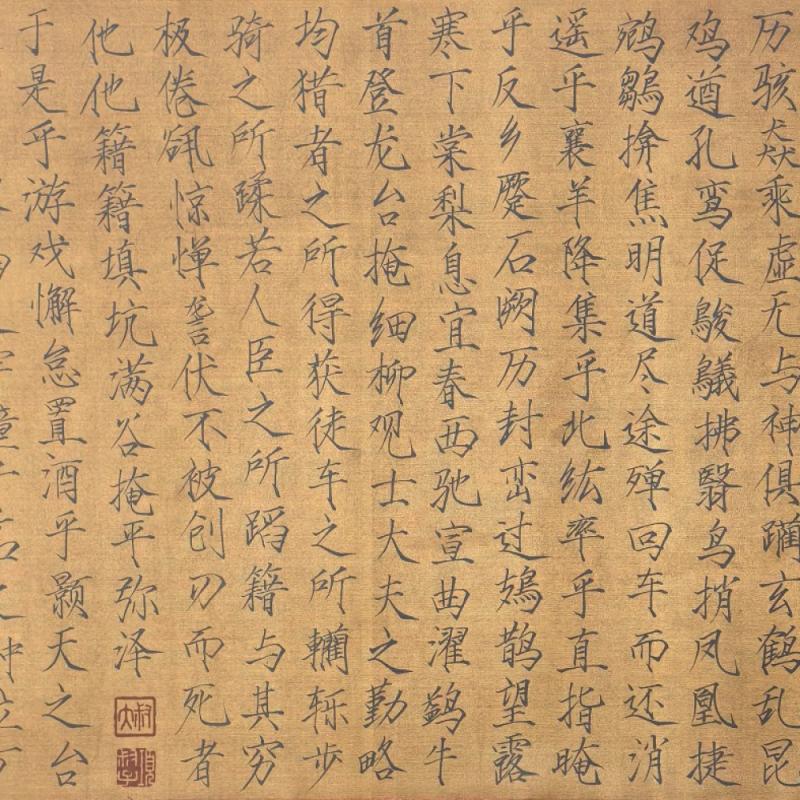 历骇猋乘虚无与神俱躏玄鹤乱昆
鸡遒孔鸾促鵔鸃拂翳鸟捎凤凰捷
鹓鶵揜焦明道尽途殚回车而还消
遥乎襄羊降集乎北纮率乎直指晻
乎反乡蹷石阙历封峦过鳷鹊望露
寒下棠梨息宜春西驰宣曲濯鹢牛
首登龙台掩细柳观士大夫之勤略
均猎者之所得获徒车之所轥轹步
骑之所蹂若人臣之所蹈籍与其穷
极倦惊惮詟伏不被创刃而死者
他他籍籍填坑满谷掩平弥泽
于是乎游戏懈怠置酒乎颢天之台